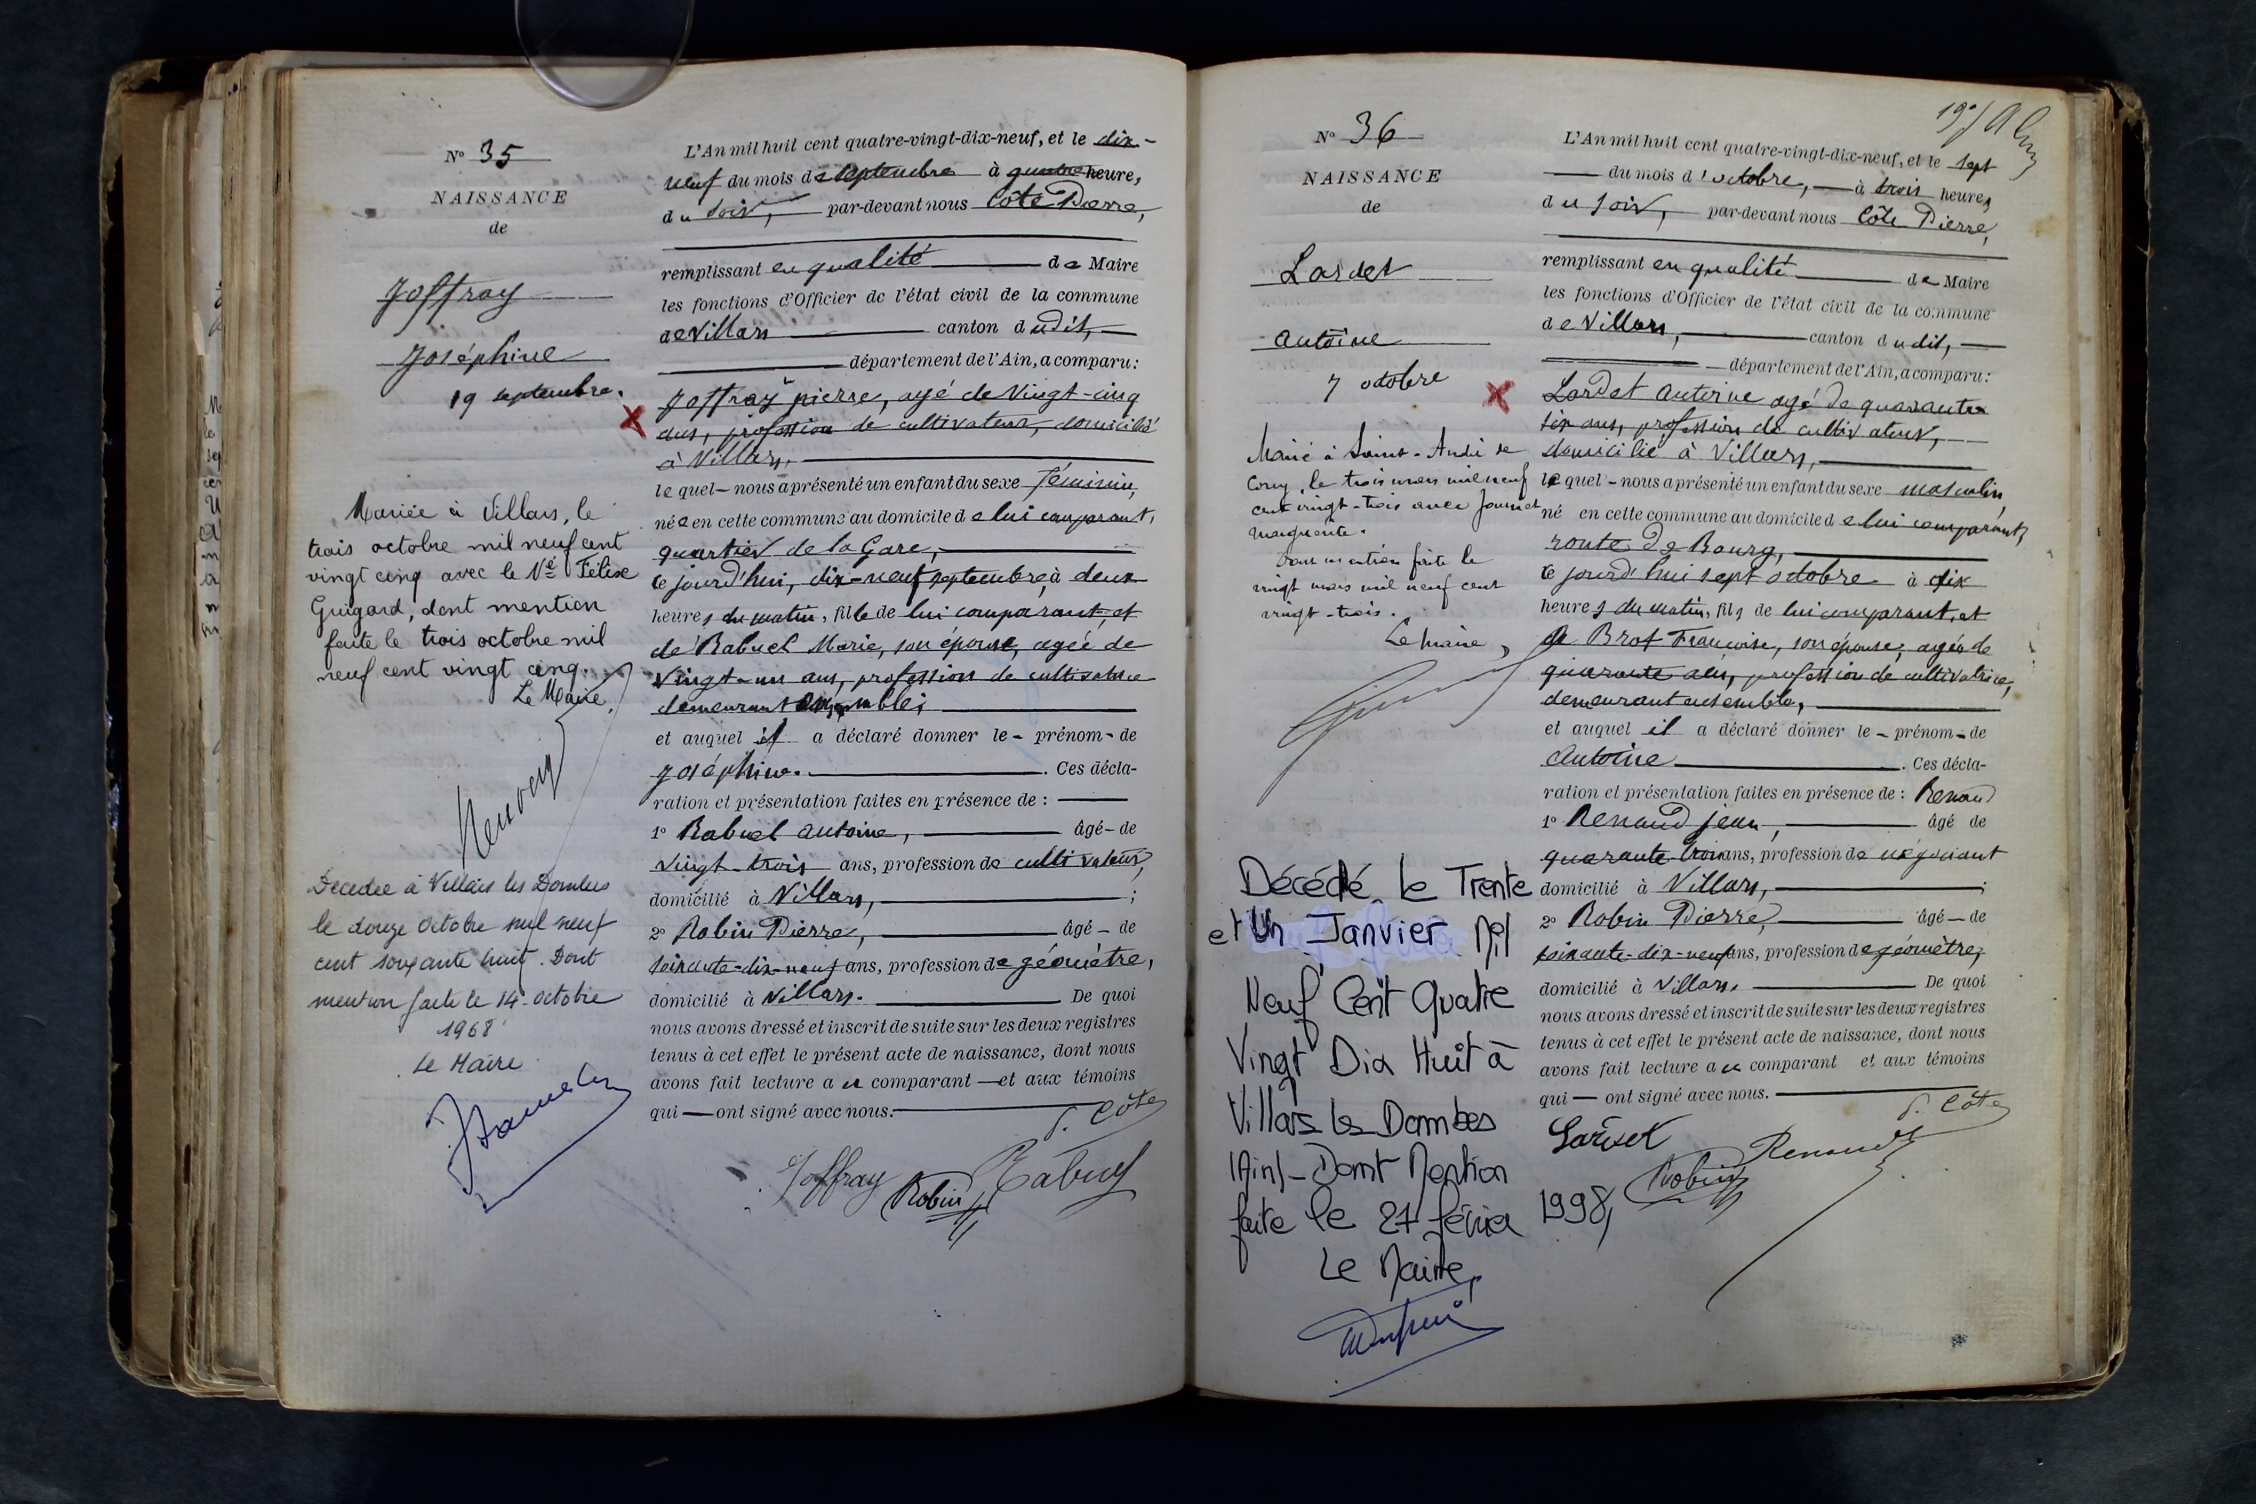 N° 35
NAISSANCE
de
Joffray
Joséphine
19 septembre.
Mariée à Villars, le
trois octobre mil neuf cent
vingt cinq avec le Sr Félix
Guigard, dont mention
faite le trois octobre mil
neuf cent vingt cinq.
Le Maire,
Décédée à Villars les Dombes
le douze octobre mil neuf
cent soixante huit. Dont
mention faite le 14 octobre
1968
Le Maire
L'An mil huit cent quatre-vingt-dix-neuf, et le dix-
neuf du mois de septembre à quatre heure,
du soir, par-devant nous Côte Pierre,
remplissant en qualité de Maire
les fonctions d'Officier de l'état civil de la commune
de Villars canton dudit,
département de l'Ain, a comparu:
Joffray pierre, agé de Vingt-cinq
ans, profession de cultivateur, domicilié
à Villars,
lequel nous a présenté un enfant du sexe féminin,
née en cette commune au domicile de lui comparant,
quartier de la Gare,
ce jourd'hui, dix-neuf septembre, à deux
heures du matin, fille de lui comparant, et
de Rabuel Marie, son épouse, agée de
Vingt-un ans, profession de cultivatrice
demeurant ensemble;
et auquel il a déclaré donner le prénom de
Joséphine. Ces décla-
ration et présentation faites en présence de :
1° Rabuel antoine, âgé de
vingt-trois ans, profession de cultivateur,
domicilié à Villars, ;
2° Robin Pierre, âgé de
soixante-dix-neuf ans, profession de géomètre,
domicilié à Villars. De quoi
nous avons dressé et inscrit de suite sur les deux registres
tenus à cet effet le présent acte de naissance, dont nous
avons fait lecture au comparant et aux témoins
qui ont signé avec nous.
P. Côte
Joffray Robin Rabuel
N° 36
NAISSANCE
de
Lardet
antoine
7 octobre
Marié à Saint-André de
Corcy, le trois mars mil neuf
cent vingt-trois avec Journet
Marguerite.
Dont mention faite le
vingt mars mil neuf cent
vingt-trois.
Le maire,
Décédé Le Trente
et Un Janvier Mil
Neuf Cent Quatre
Vingt Dix Huit à
Villars les Dombes
(Ain) - Dont Mention
faite le 27 février 1998,
Le Maire,
L'An mil huit cent quatre-vingt-dix-neuf, et le sept
du mois d'octobre, à trois heures,
du soir, par-devant nous Côte Pierre,
remplissant en qualité de Maire
les fonctions d'Officier de l'état civil de la commune
de Villars, canton dudit,
département de l'Ain, a comparu:
Lardet antoine agé de quarante
six ans, profession de cultivateur,
domicilié à Villars,
lequel nous a présenté un enfant du sexe masculin,
né en cette commune au domicile de lui comparant,
route de Bourg,
ce jourd'hui sept octobre à dix
heures du matin, fils de lui comparant, et
de Brot Francoise, son épouse, agée de
quarante ans, profession de cultivatrice,
demeurant ensemble,
et auquel il a déclaré donner le prénom de
antoine. Ces décla-
ration et présentation faites en présence de : Renaud
1° Renaud jean, âgé de
quarante-trois ans, profession de négociant
domicilié à Villars, ;
2° Robin Pierre, âgé de
soixante-dix-neuf ans, profession de géomètre,
domicilié à Villars. De quoi
nous avons dressé et inscrit de suite sur les deux registres
tenus à cet effet le présent acte de naissance, dont nous
avons fait lecture au comparant et aux témoins
qui ont signé avec nous.
P. Côte
Lardet
Robin Renaud